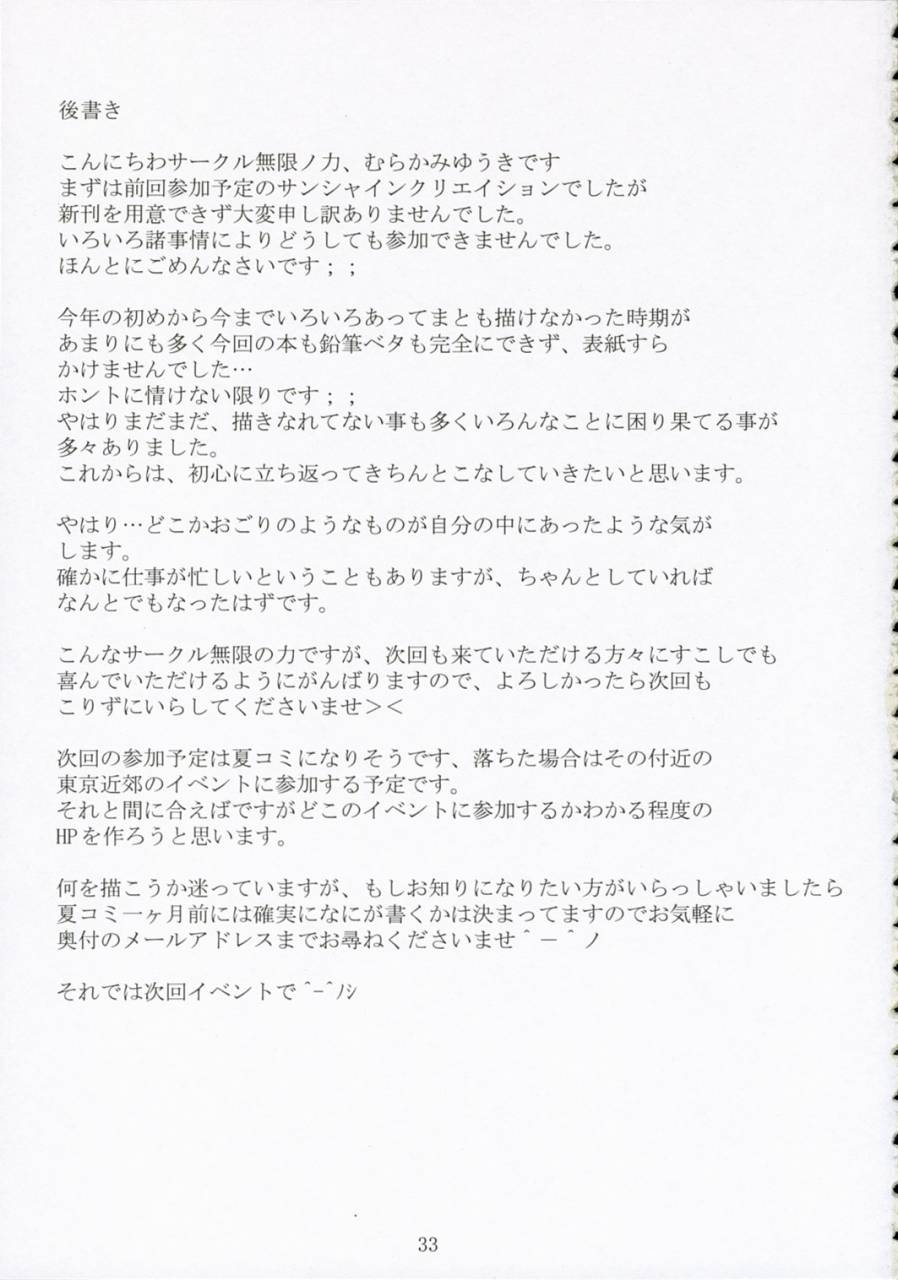 後書き
こんにちわサークル無限ノ力、むらかみゆうきです
まずは前回参加予定のサンシャインクリエイションでしたが
新刊を用意できず大変申し訳ありませんでした。
いろいろ諸事情によりどうしても参加できませんでした。
ほんとにごめんなさいです；；
今年の初めから今までいろいろあってまとも描けなかった時期が
あまりにも多く今回の本も鉛筆ベタも完全にできず、表紙すら
かけませんでした…
ホントに情けない限りです；；
やはりまだまだ、描きなれてない事も多くいろんなことに困り果てる事が
多々ありました。
これからは、初心に立ち返ってきちんとこなしていきたいと思います。
やはり…どこかおごりのようなものが自分の中にあったような気が
します。
確かに仕事が忙しいということもありますが、ちゃんとしていれば
なんとでもなったはずです。
こんなサークル無限の力ですが、次回も来ていただける方々にすこしでも
喜んでいただけるようにがんばりますので、よろしかったら次回も
こりずにいらしてくださいませ＞＜
次回の参加予定は夏コミになりそうです、落ちた場合はその付近の
東京近郊のイベントに参加する予定です。
それと間に合えばですがどこのイベントに参加するかわかる程度の
HPを作ろうと思います。
何を描こうか迷っていますが、もしお知りになりたい方がいらっしゃいましたら
夏コミ一ヶ月前には確実になにが書くかは決まってますのでお気軽に
奥付のメールアドレスまでお尋ねくださいませ＾－＾ノ
それでは次回イベントで^-^ﾉｼ
33